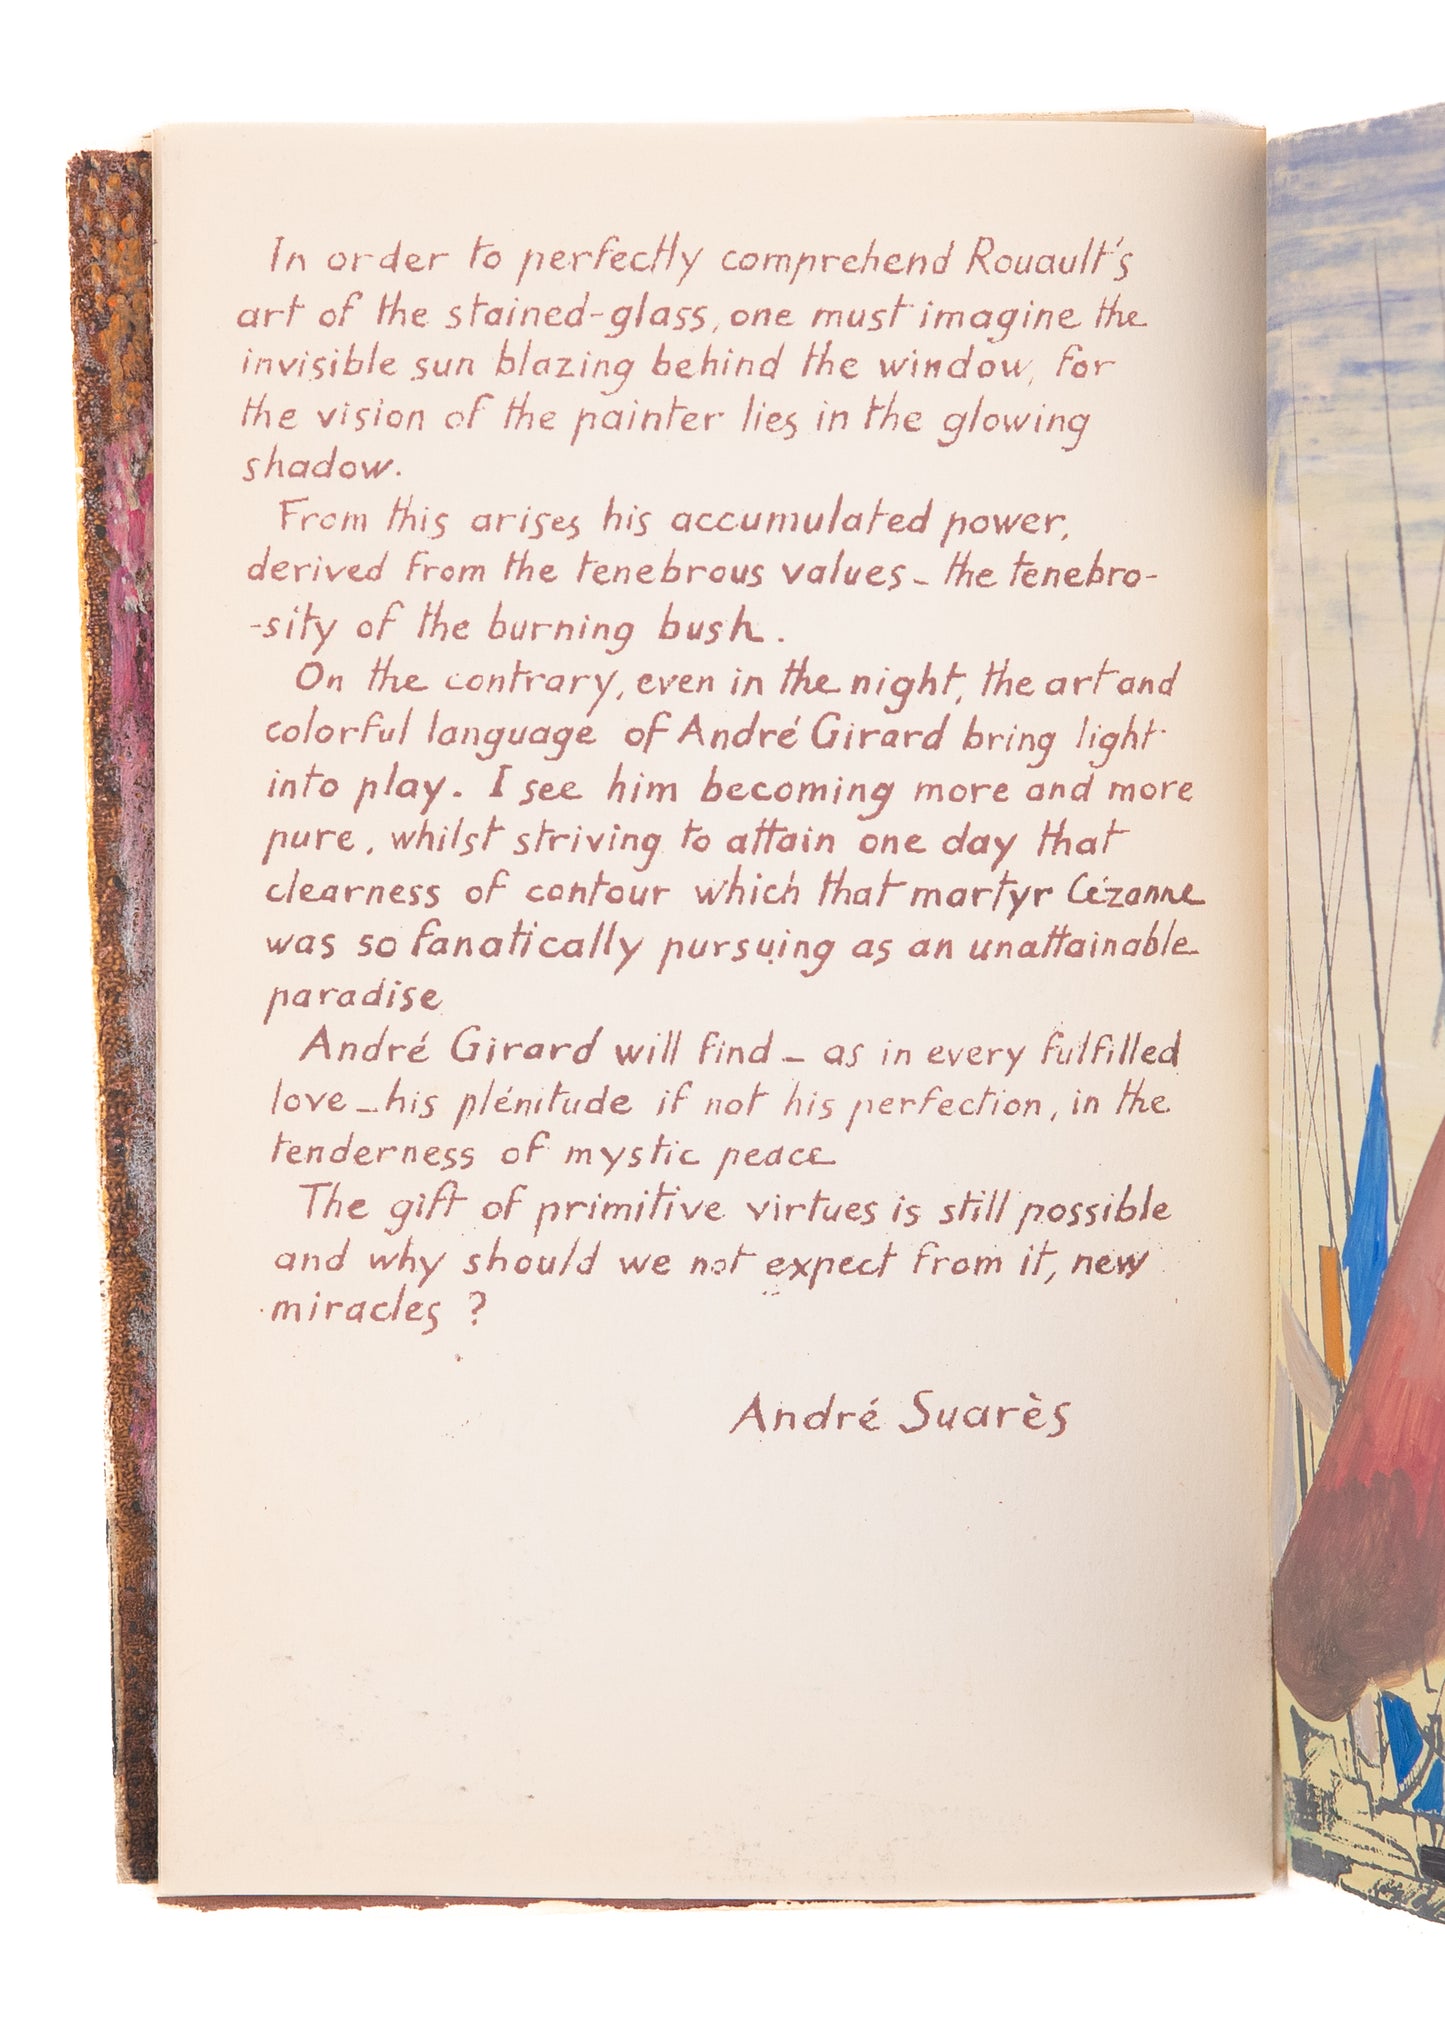 In order to perfectly comprehend Rouault's
art of the stained-glass, one must imagine the
invisible sun blazing behind the window, for
the vision of the painter lies in the glowing
shadow.
From this arises his accumulated power,
derived from the tenebrous values – the tenebro-
-sity of the burning bush.
On the contrary, even in the night, the art and
colorful language of André Girard bring light
into play. I see him becoming more and more
pure, whilst striving to attain one day that
clearness of contour which that martyr Cézanne
was so fanatically pursuing as an unattainable
paradise
André Girard will find – as in every fulfilled
love – his plénitude if not his perfection, in the
tenderness of mystic peace
The gift of primitive virtues is still possible
and why should we not expect from it, new
miracles ?
André Suarès